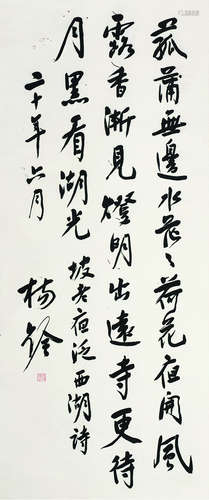 菰蒲無邊水茫〻荷花夜開風
露香漸見燈明出遠寺更待
月黑看湖光 坡老夜泛西湖詩
二十年六月
楊銓